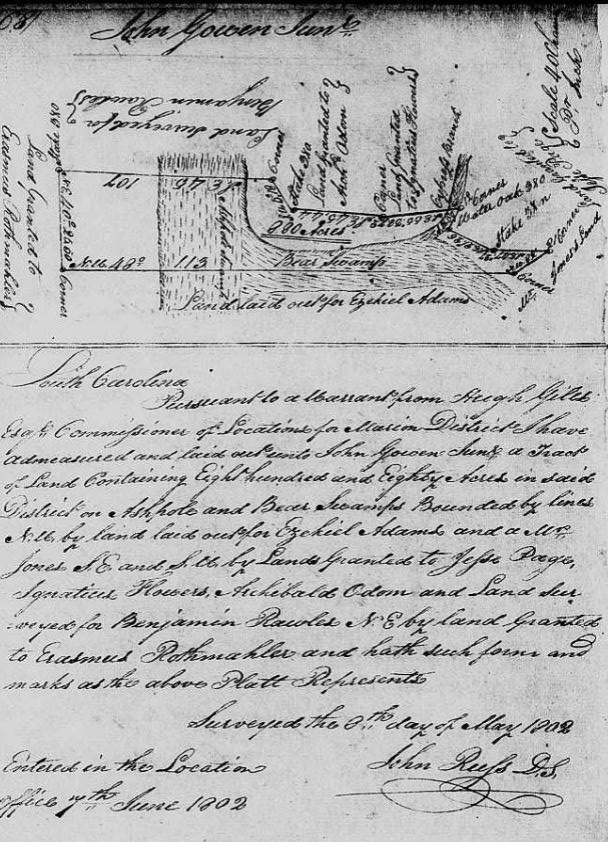 John Gowen Junr
Scale 40 Chains
Pr Inch
Land Surveyed for
Benjamin Rawles
Land Granted to
Erasmus Rothmahler
Corner
107
N.W. 48°
113
Ashpole Swamp
Corner
Stake 3xn
Land Granted to
Archd Odom
Corner
Land Granted
to Ignatius Flowers
Cypress
880 Acres
Bear Swamp
Corner
Water Oak 3x0
Stake 3xn
Corner
Mr Jones's Land
Corner
Land laid out for Ezekiel Adams
South Carolina
Pursuant to a Warrant from Hugh Giles
Esqr Commissioner of Locations for Marion District I have
admeasured and laid out unto John Gowen Junr a Tract
of Land Containing Eight hundred and Eighty Acres in said
District on Ashpole and Bear Swamps Bounded by lines
N.W. by land laid out for Ezekiel Adams and a Mr
Jones S.E and S.W. by Lands Granted to Jesse Page,
Ignatius Flowers, Archibald Odom and Land Sur
-veyed for Benjamin Rawles N.E by land Granted
to Erasmus Rothmahler and hath such form and
marks as the above Platt Represents
Surveyed the 8th day of May 1802
Entered in the Location John Reess D.S.
Office 7th June 1802